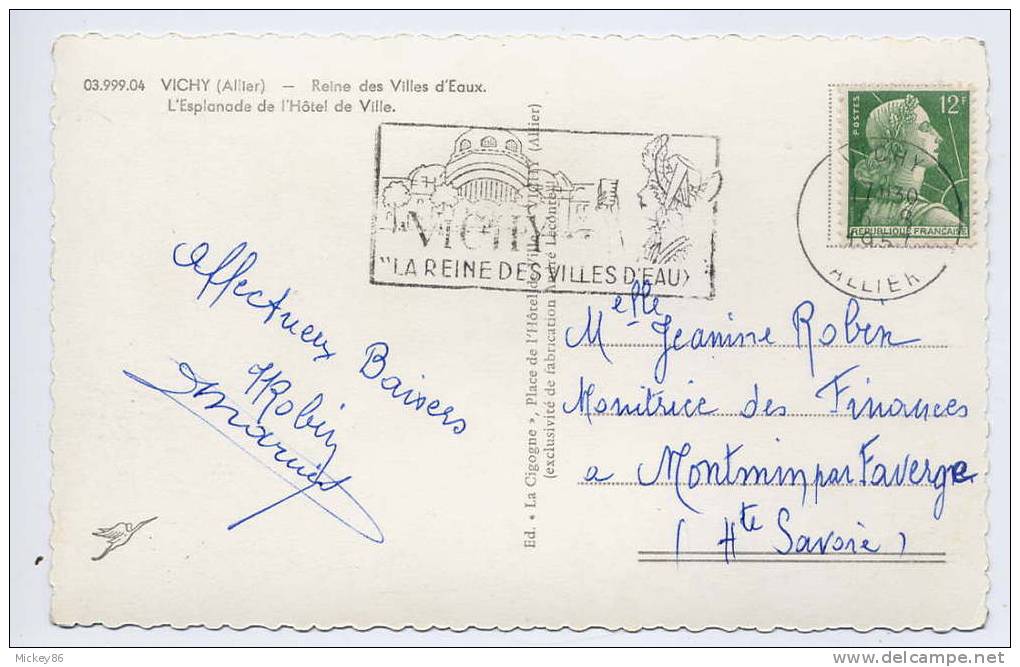 03.999.04 VICHY (Allier) — Reine des Villes d'Eaux.
L'Esplanade de l'Hôtel de Ville.
POSTES 12F
REPUBLIQUE FRANÇAISE
VICHY
17H30
8
1957
ALLIER
VICHY
"LA REINE DES VILLES D'EAU"
Ed. « La Cigogne », Place de l'Hôtel de Ville - VICHY (Allier)
(exclusivité de fabrication André Leconte)
Affectueux Baisers
Robin
Melle Jeanine Robin
Monitrice des Finances
a Montmin par Faverge
(Hte Savoie)
Mickey86
delcampe.net